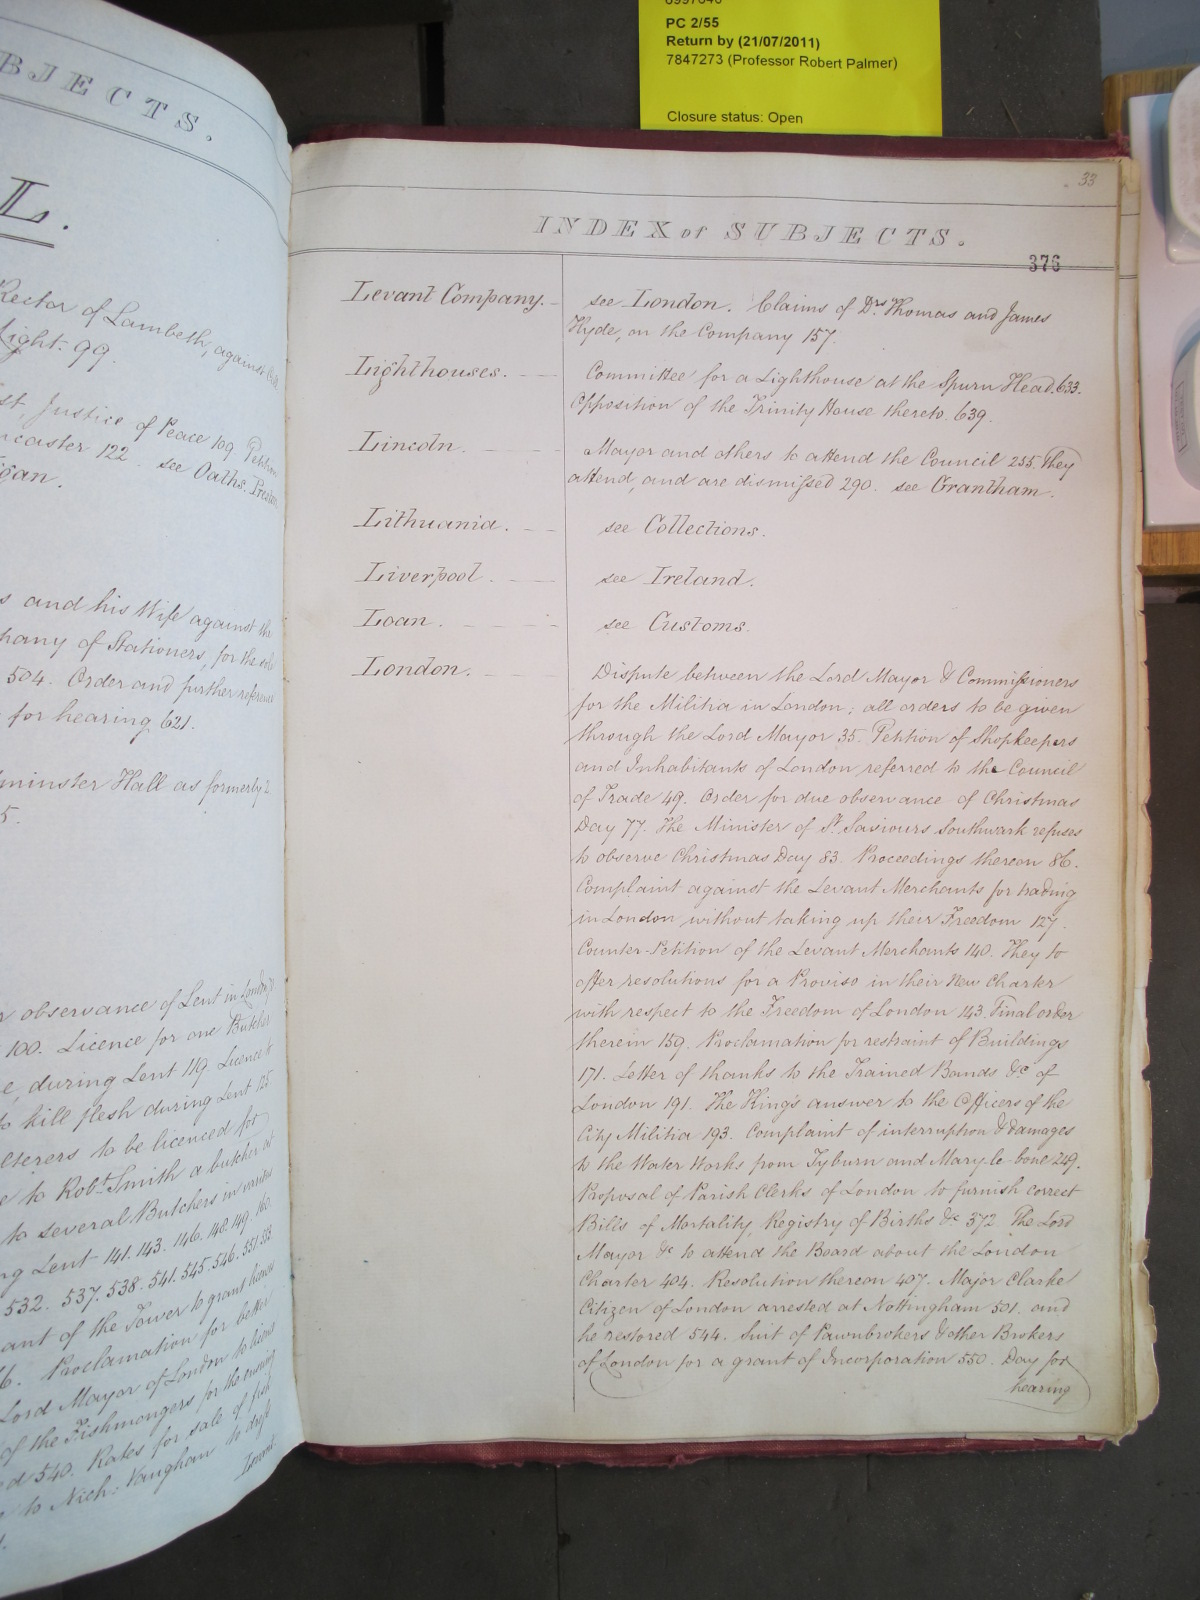 PC 2/55
Return by (21/07/2011)
7847273 (Professor Robert Palmer)
Closure status: Open
BJECTS.
L.
Rector of Lambeth, against
Right. 99.
st, Justice of Peace 109 Petition
ncaster 122. see Oaths. Preston
s and his Wife against the
pany of Stationers, for the sole
504. Order and further reference
for hearing 621.
minster Hall as formerly 2
5.
r observance of Lent in London
100. Licence for one Butcher
e, during Lent 119. Licence
to kill flesh during Lent 125
lterers to be licenced for
e to Robt. Smith a butcher at
to several Butchers in various
ng Lent 141. 143. 146. 148. 149. 160.
532. 537. 538. 541. 545. 546. 551.
ant of the Tower to grant
6. Proclamation for better
Lord Mayor of London to
of the Fishmongers for the ensuing
d 540. Rates for sale of fish
to Nich: Vaughan to dress
33
INDEX of SUBJECTS.
376
Levant Company. see London. Claims of Drs. Thomas and James
Hyde, on the Company 157.
Lighthouses. Committee for a Lighthouse at the Spurn Head. 633.
Opposition of the Trinity House thereto. 639.
Lincoln. Mayor and others to attend the Council 255. They
attend, and are dismissed 290. see Grantham.
Lithuania. see Collections.
Liverpool. see Ireland.
Loan. see Customs.
London. Dispute between the Lord Mayor & Commissioners
for the Militia in London; all orders to be given
through the Lord Mayor 35. Petition of Shopkeepers
and Inhabitants of London, referred to the Council
of Trade 49. Order for due observance of Christmas
Day 77. The Minister of St. Saviours Southwark refuses
to observe Christmas Day 83. Proceedings thereon 86.
Complaint against the Levant Merchants for trading
in London without taking up their Freedom 127.
Counter-Petition of the Levant Merchants 140. They to
offer resolutions for a Proviso in their New Charter
with respect to the Freedom of London 143. Final order
therein 159. Proclamation for restraint of Buildings
171. Letter of thanks to the Trained Bands &c. of
London 191. The King's answer to the Officers of the
City Militia 193. Complaint of interruption & damages
to the Water Works from Tyburn and Mary-le-bone 249.
Proposal of Parish Clerks of London to furnish correct
Bills of Mortality, Registry of Births &c 372. The Lord
Mayor &c to attend the Board about the London
Charter 404. Resolution thereon 407. Major Clarke
Citizen of London arrested at Nottingham 501. and
he restored 544. Suit of Pawnbrokers & other Brokers
of London for a grant of Incorporation 550. Day for
hearing